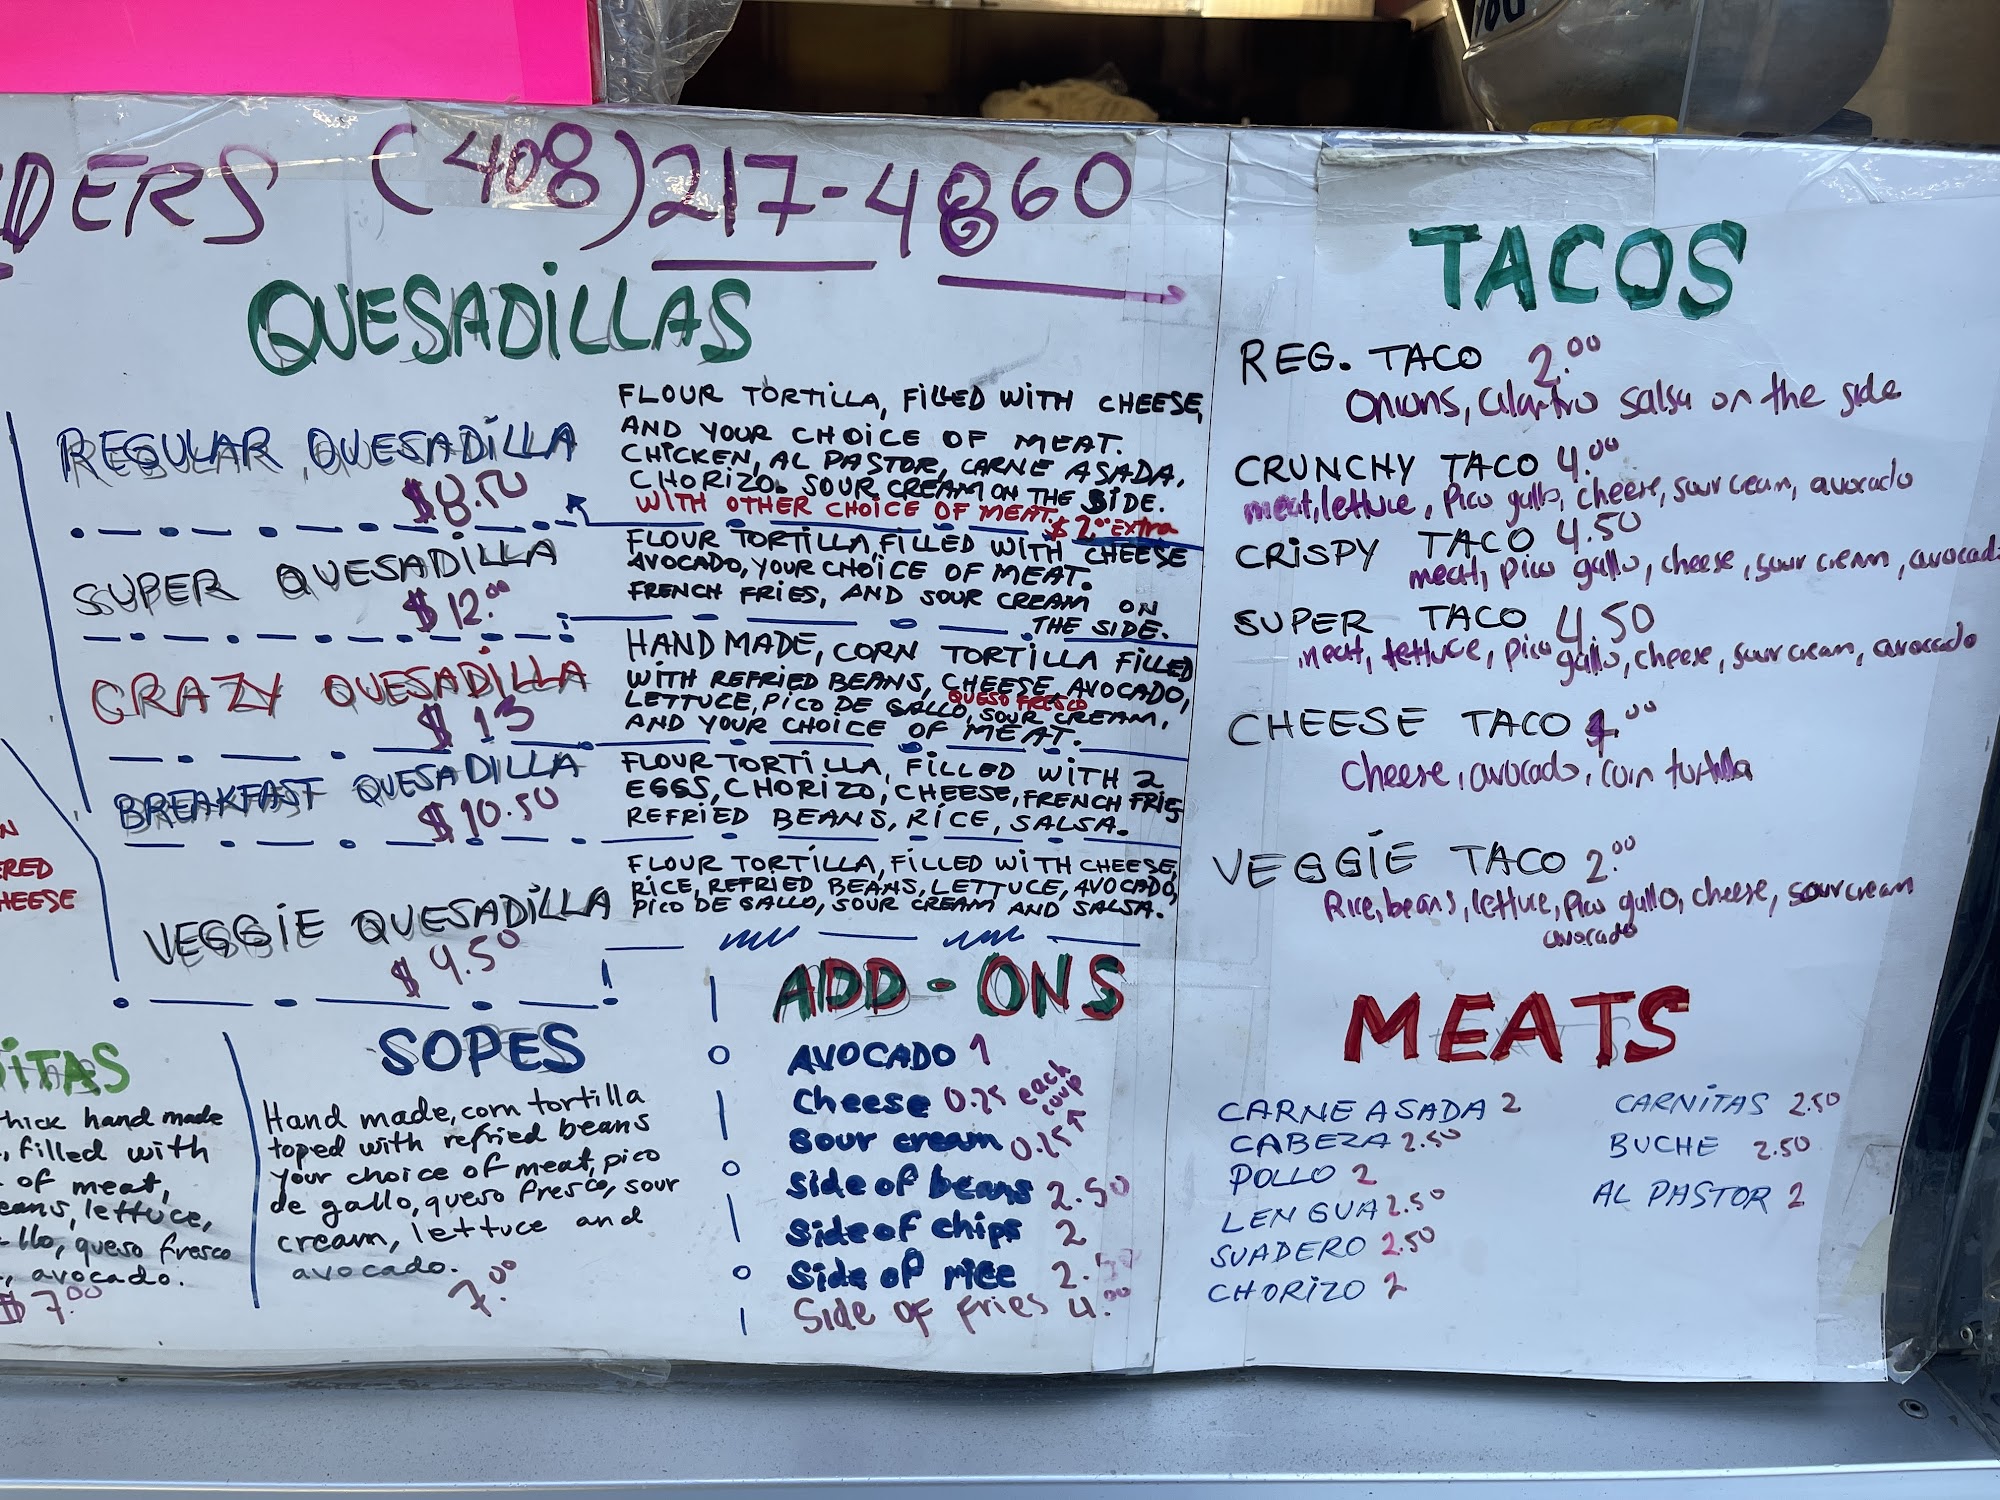 DERS (408)217-4860
QUESADiLLAS
REGULAR QUESADiLLA
$8.50
FLOUR TORTILLA, FiLLED WiTH CHEESE,
AND YOUR CHOiCE OF MEAT.
CHiCKEN, AL PASTOR, CARNE ASADA,
CHORiZO. SOUR CREAM ON THE SiDE.
WiTH OTHER CHOiCE OF MEAT. $2.00 Extra
SUPER QUESADiLLA
$12.00
FLOUR TORTiLLA, FiLLED WiTH CHEESE
AVOCADO, YOUR CHOiCE OF MEAT.
FRENCH FRiES, AND SOUR CREAM ON
THE SiDE.
CRAZY QUESADiLLA
$13
HAND MADE, CORN TORTiLLA FiLLED
WiTH REFRiED BEANS, CHEESE, AVOCADO,
LETTUCE, PiCO DE GALLO, QUESO FRESCO, SOUR CREAM,
AND YOUR CHOiCE OF MEAT.
BREAKFAST QUESADiLLA
$10.50
FLOUR TORTiLLA, FiLLED WiTH 2
EGGS, CHORiZO, CHEESE, FRENCH FRiES
REFRiED BEANS, RiCE, SALSA.
VEGGiE QUESADiLLA
$9.50
FLOUR TORTiLLA, FiLLED WiTH CHEESE,
RiCE, REFRiED BEANS, LETTUCE, AVOCADO,
PiCO DE GALLO, SOUR CREAM AND SALSA.
N
ERED
HEESE
iTAS
hick hand made
, filled with
of meat,
eans, lettuce,
llo, queso fresco
, avocado.
$7.00
SOPES
Hand made, corn tortilla
toped with refried beans
your choice of meat, pico
de gallo, queso fresco, sour
cream, lettuce and
avocado.
7.00
ADD-ONS
AVOCADO 1
Cheese 0.75 each
cup
Sour cream 0.75
Side of beans 2.50
Side of chips 2
Side of rice 2.50
Side of fries 4.00
TACOS
REG. TACO 2.00
Onions, cilantro salsa on the side
CRUNCHY TACO 4.00
meat, lettuce, pico gallo, cheese, sour cream, avocado
CRiSPY TACO 4.50
meat, pico gallo, cheese, sour cream, avocado
SUPER TACO 4.50
meat, lettuce, pico gallo, cheese, sour cream, avocado
CHEESE TACO 4.00
Cheese, avocado, corn tortilla
VEGGiE TACO 2.00
Rice, beans, lettuce, pico gallo, cheese, sour cream
avocado
MEATS
CARNE ASADA 2
CABEZA 2.50
POLLO 2
LENGUA 2.50
SUADERO 2.50
CHORiZO 2
CARNiTAS 2.50
BUCHE 2.50
AL PASTOR 2